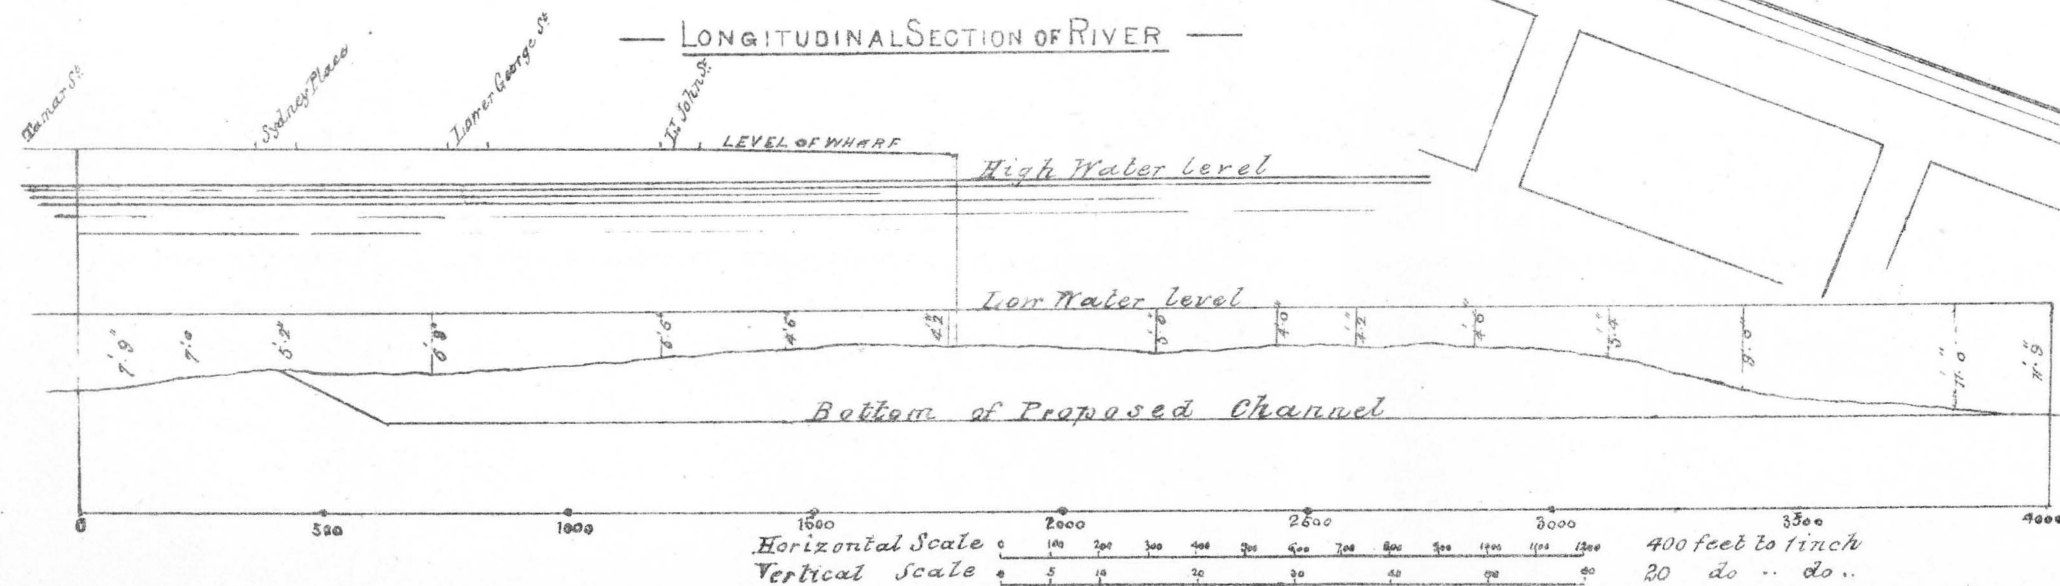 LONGITUDINAL SECTION OF RIVER
Tamar St.
Sydney Place
Lower George St.
Lr. John St.
LEVEL OF WHARF
High Water level
Low Water level
7'.9"
7'.0
5'.2"
6'.8"
6'.6"
4'.6"
4'.2"
5'.0"
4'.0"
4'.2"
4'.6"
5'.4"
9'.0"
11'.0"
11'.9"
Bottom of Proposed Channel
0 500 1000 1500 2000 2500 3000 3500 4000
Horizontal Scale 0 100 200 300 400 500 600 700 800 900 1000 1100 1200 400 feet to 1 inch
Vertical Scale 0 5 10 20 30 40 50 60 20 do .. do ..